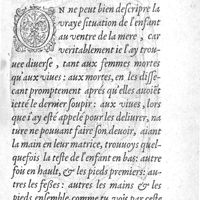 ON ne peut bien descripre la
vraye situation de l'enfant
au ventre de la mere, car
veritablement ie l'ay trou-
uee diuerse, tant aux femmes mortes
qu'aux viues: aux mortes, en les disse-
cant promptement après qu'elles auoiẽt
ietté le dernier soupir: aux viues, lors
que i'ay esté appelé pour les deliurer, na
ture ne pouuant faire son deuoir, aiant
la main en leur matrice, trouuoys quel-
quefois la teste de l'enfant en bas: autre
fois en hault, & les pieds premiers: au-
tres les fesses: autres les mains & les
pieds ensemble, comme tu vois par ceste